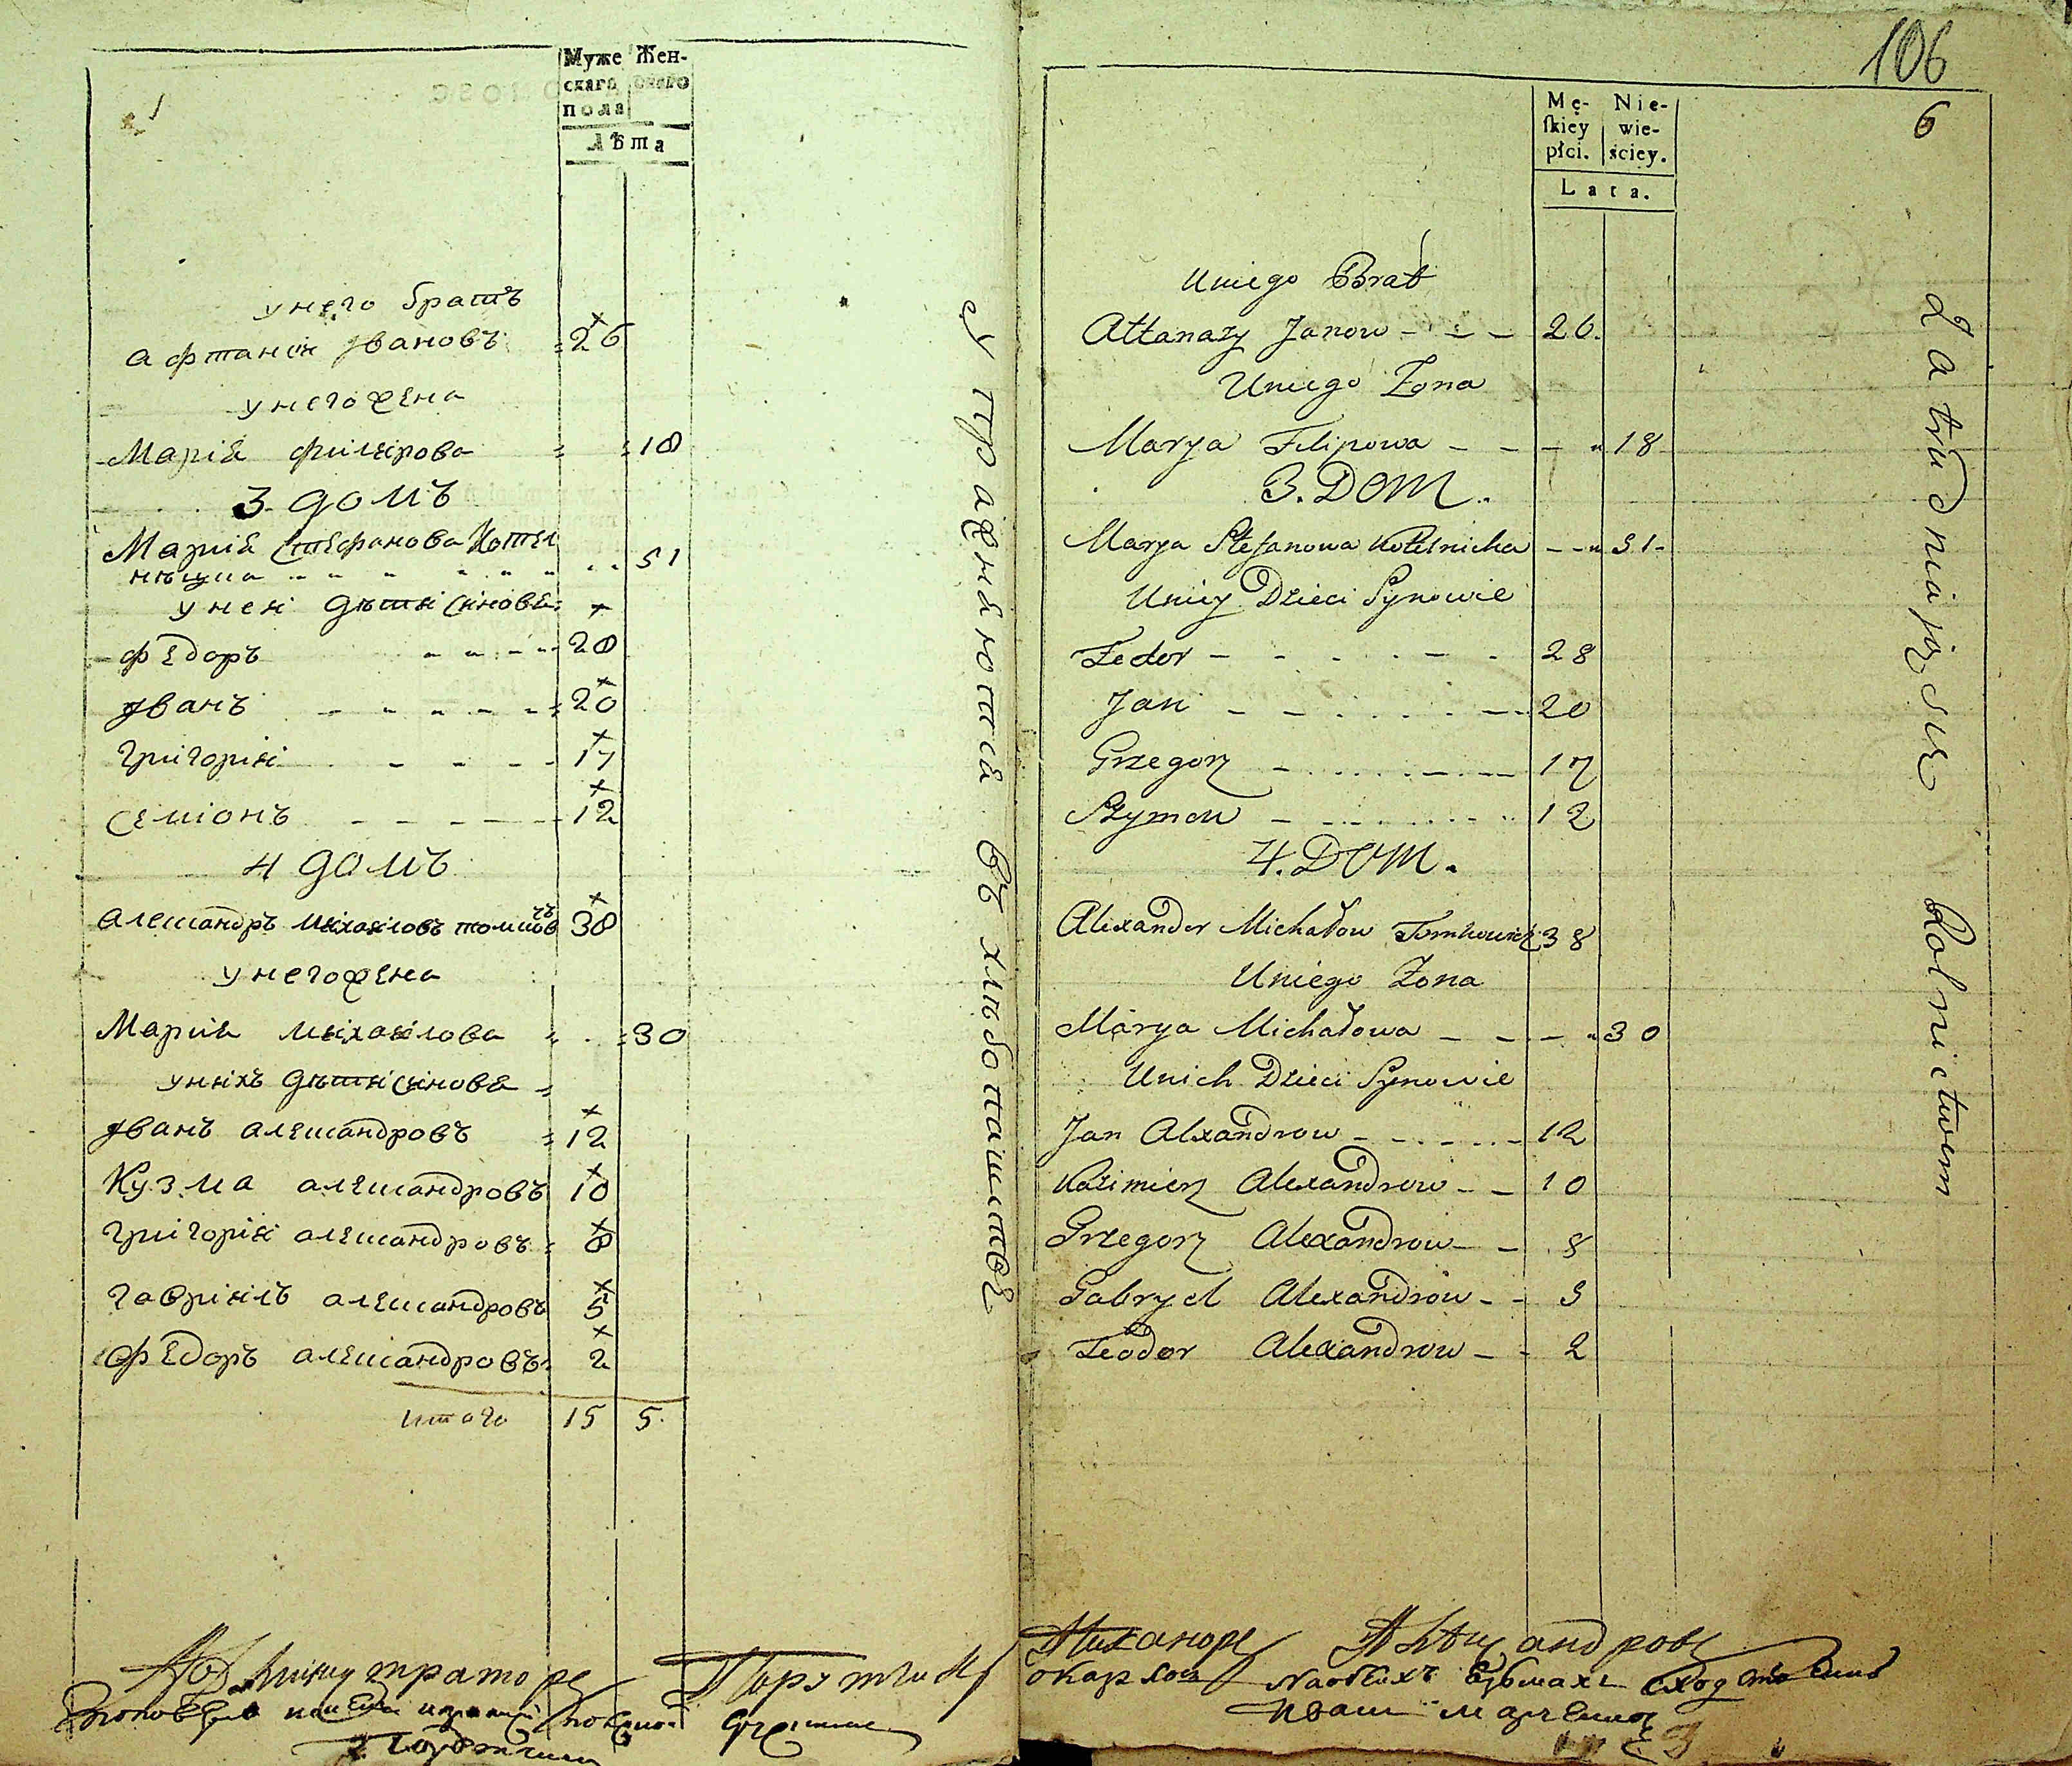 Муже Жен-
скаго скаго
пола
Лѣта
у него братъ
афтанси Iвановъ 26
у него жена
Мария филипова 18
3 домъ
Мария Стефанова Котел
ницка 51
у неи дѣти синовя
федоръ 28
Iванъ 20
Григории 17
Семионъ 12
4 домъ
Александръ михаиловъ томковъ 38
у него жена
Мария михаилова 30
у нихъ дѣти синовя
Iванъ александровъ 12
Кузма александровъ 10
Григории александровъ 8
Гавриилъ александровъ 5
Федоръ александровъ 2
итого 15 5
упражняются въ хлѣбопашествѣ
106
6
Mę- Nie-
ſkiey wie-
płci. ściey.
Lata.
Uniego Brat
Attanazy Janow 26.
Uniego Zona
Marya Filipowa 18
3. DOM.
Marya Stefanowa Kotelnicka 51
Uniey Dzieci Synowie
Fedor 28
Jan 20
Grzegorz 17
Szymon 12
4. DOM.
Alexander Michałow Tomkowicz 38
Uniego Zona
Marya Michałowa 30
Unich Dzieci Synowie
Jan Alexandrow 12
Kazimierz Alexandrow 10
Grzegorz Alexandrow 8
Gabryel Alexandrow 5
Feodor Alexandrow 2
Zatrudniaią się Rolnictwem